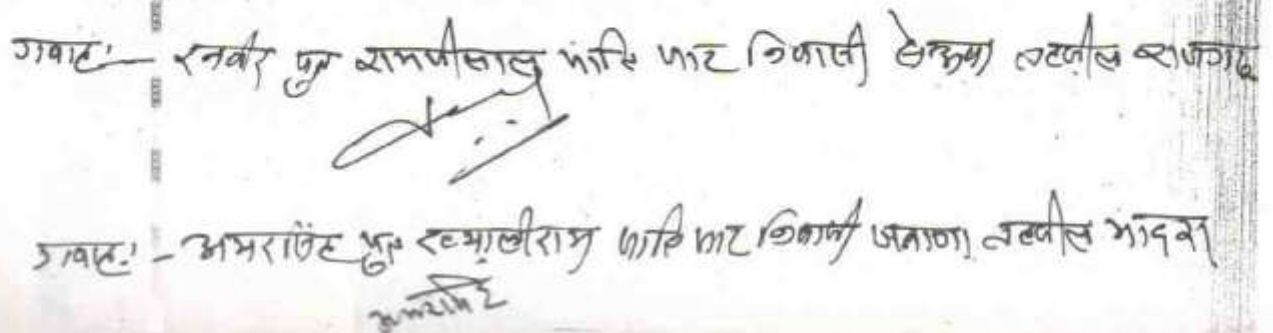 गवाह:- रनवीर पुत्र रामजीलाल जाति जाट निवासी तहसील राजगढ़
गवाह:- अमरसिंह पुत्र ख्यालीराम जाति जाट निवासी जनाणा तहसील भादरा
अमरसिंह